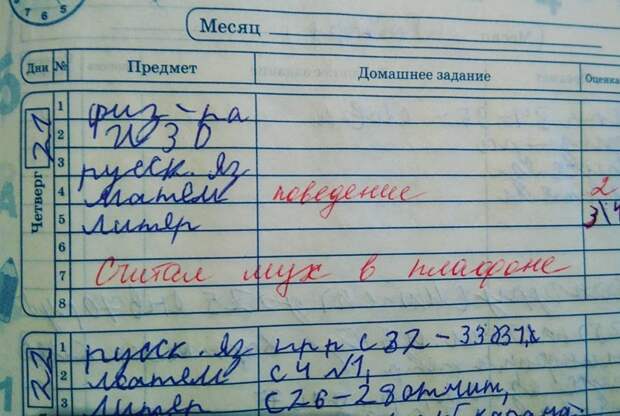 7 6 5
Месяц
Дни № Предмет Домашнее задание Оценка
Четверг 21
1 физ-ра
2 ИЗО
3 русск. яз
4 матем поведение 2
5 литер 3\4
6
7 Считал мух в плафоне
8
22
1 русск. яз ппр с 32-33
2 матем с 4 №1,
3 литер с 26-28 отчит,